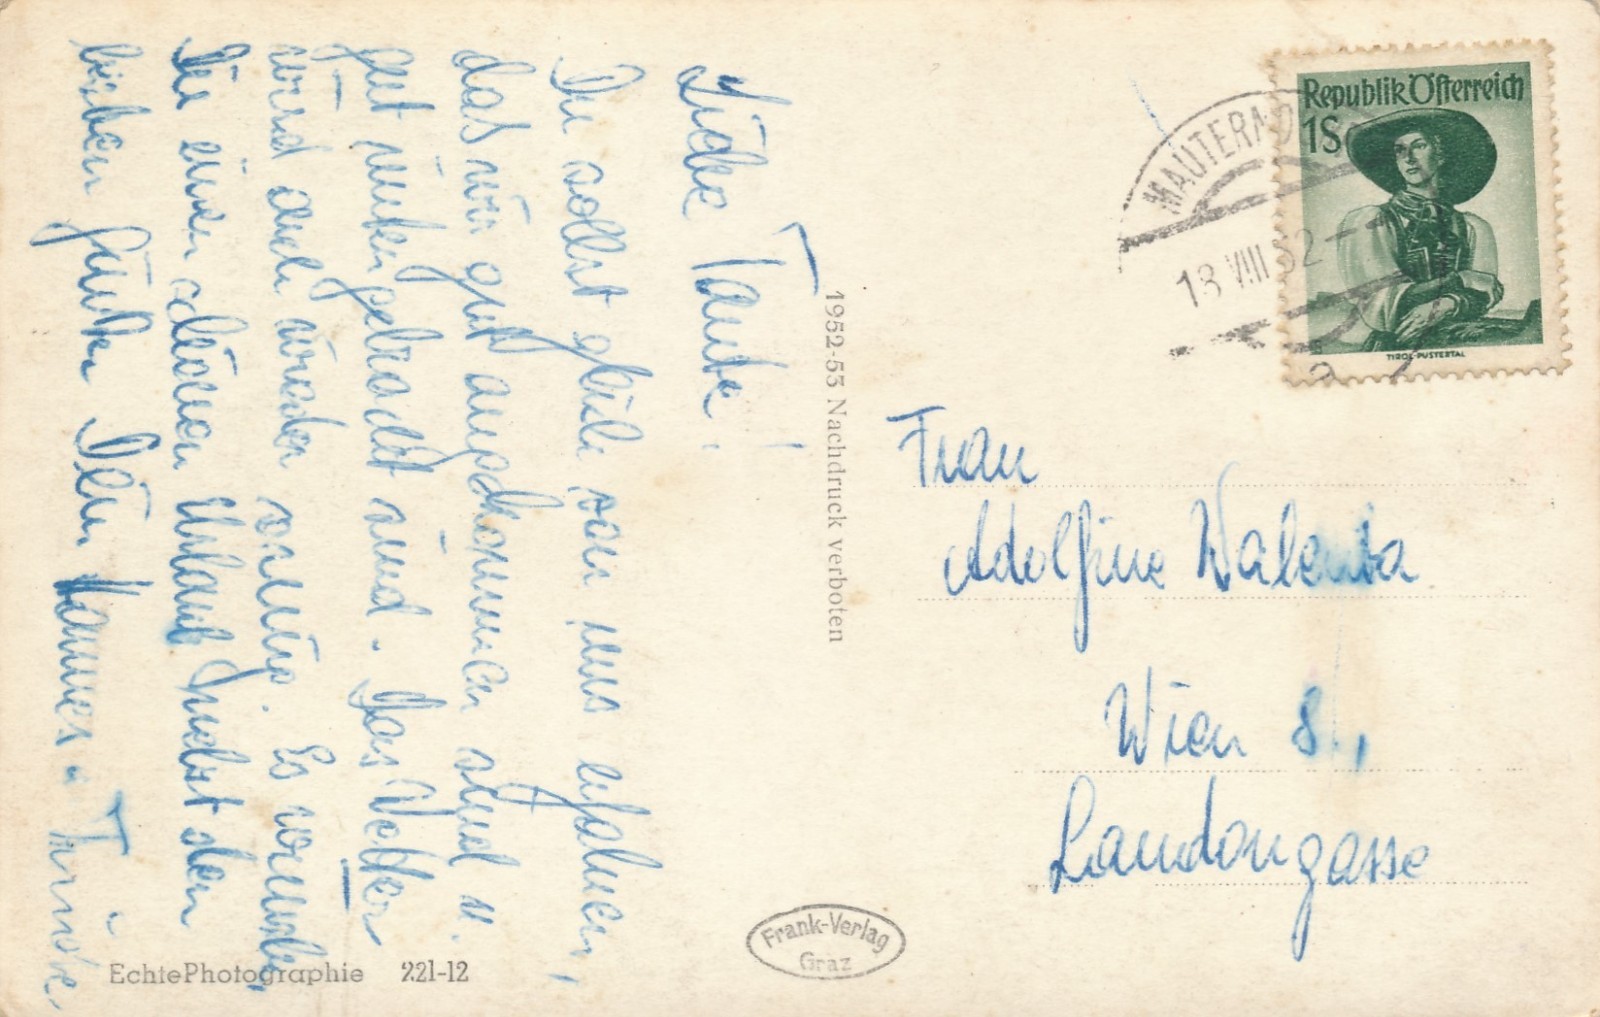 Liebe Tante!
Du sollst gleich von uns erfahren,
daß wir gut angekommen sind u.
gut untergebracht sind. Das Wetter
wird auch wieder sonnig. Es wünscht
Dir einen schönen Urlaub nebst den
lieben Deine Hannes u.
1952-53 Nachdruck verboten
Echte Photographie 221-12
Frank-Verlag
Graz
Republik Österreich
1S
TIROL-PUSTERTAL
MAUTERND
18 VIII 52
Frau
Adolfine Walenta
Wien 8.,
Laudongasse